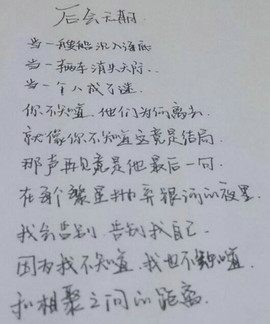 后会无期
当一艘船沉入海底
当一辆车消失天际.
当一个人成了谜
你不知道.他们为何离去
就像你不知道这竟是结局
那声再见竟是他最后一句.
在每个繁星抛弃银河的夜里
我会告别.告别我自己
因为我不知道.我也不知道
和相聚之间的距离